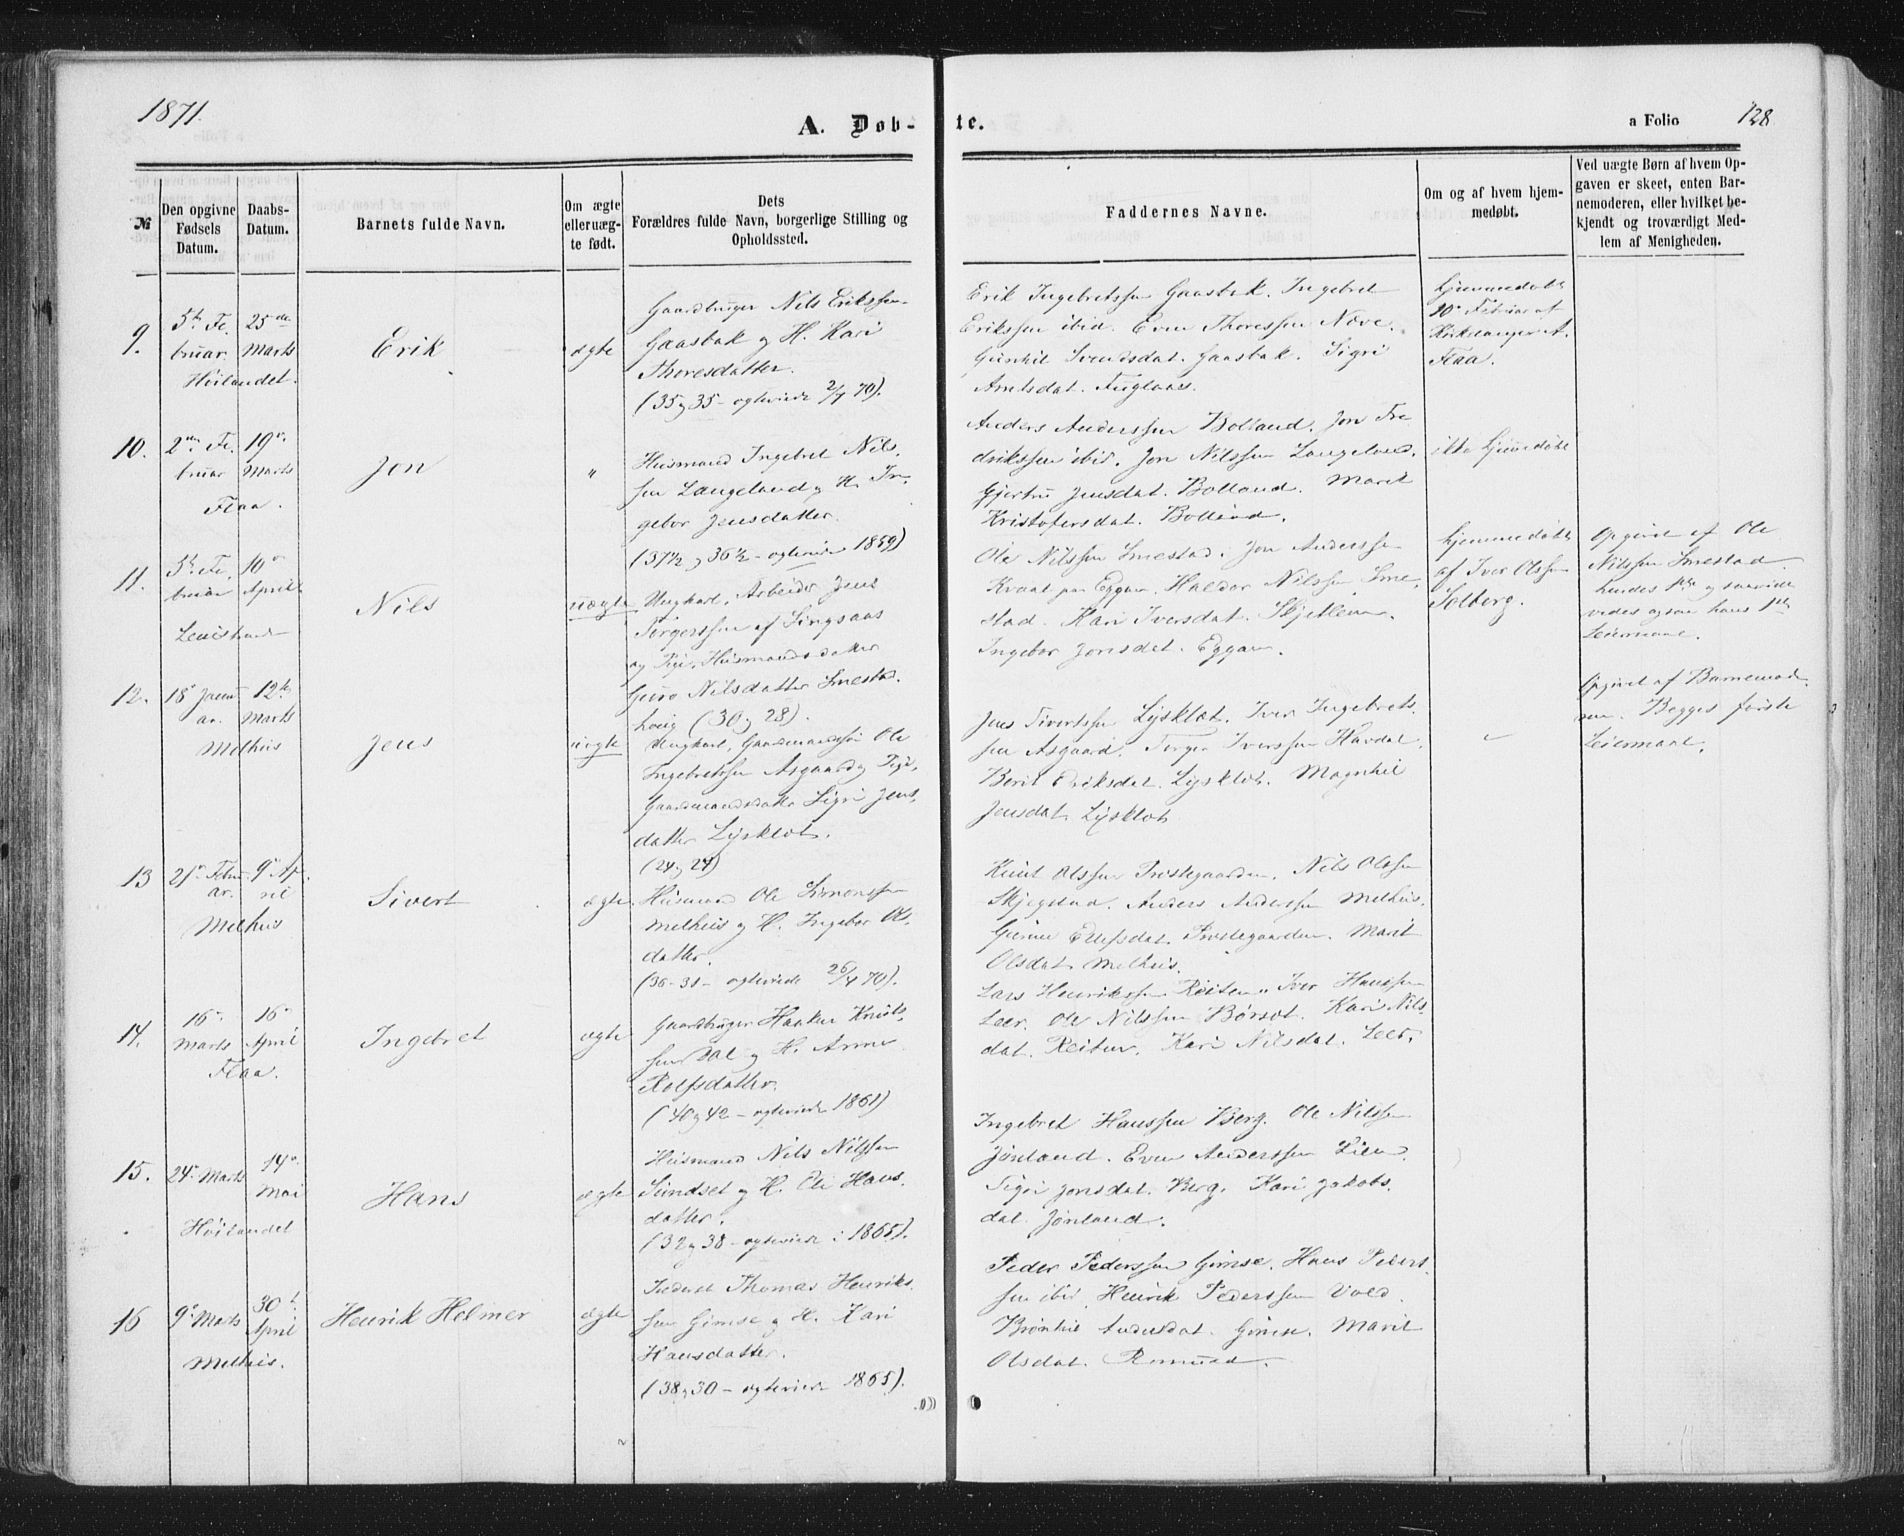 1871.
A. Døb-
te.
a Folio 128
№
Den opgivne Fødsels Datum.
Daabs-Datum.
Barnets fulde Navn.
Om ægte eller uægte født.
Dets Forældres fulde Navn, borgerlige Stilling og Opholdssted.
Faddernes Navne.
Om og af hvem hjemmedøbt.
Ved uægte Børn af hvem Opgaven er skeet, enten Barnemoderen, eller hvilket bekjendt og troværdigt Medlem af Menigheden.
9.
5te Fe-
bruar.
Høilandet.
25de
Marts
Erik
ægte
Gaardbruger Nils Erikssen
Gaasbak og H. Kari
Thoresdatter.
(35 og 35 - egteviede 2/7 70).
Erik Ingebretssen Gaasbak. Ingebret
Erikssen ibid. Even Thoressen Næve.
Gunhil Svendsdat. Gaasbak. Sigri
Arntsdat. Fuglaas.
hjemmedøbt
10. Februar af
Kirkesanger A.
Flaa.
10.
2den Fe-
bruar
Flaa.
19.
Marts
Jon
"
Husmand Ingebret Nils-
sen Langeland og H. In-
gebor Jensdatter.
(37½ og 36½ - egteviede 1859)
Anders Anderssen Bolland. Jon Fre-
drikssen ibid. Jon Nilssen Langeland.
Gjertru Jensdat. Bolland. Marit
Kristofersdat. Bolland.
ikke hjemmedøbt
11.
5te Fe-
bruar
Leinstrand
10.
April
Nils
uægte
Ungkarl, Arbeider Jens
Torgerssen af Singsaas
og Pige, Husmandsdatter
Guro Nilsdatter Smestad-
houg (30 og 28).
Ole Nilssen Smestad. Jon Anderssen
Kvaal paa Eggan. Haldor Nilssen Sme-
stad. Kari Iversdat. Skjetlein.
Ingebor Jonsdat. Eggan.
hjemmedøbt
af Iver Olssen
Solberg.
Opgivet af Ole
Nilssen Smestad.
hendes 1ste og saavidt
vides ogsaa hans 1ste
Leiermaal.
12.
18. Janu-
ar.
Melhus
12te
Marts
Jens
uægte
Ungkarl, Gaardmandssøn Ole
Ingebretssen Asgaard og Pige,
Gaardmandsdatter Sigri Jens-
datter Lysklæt.
(24 og 24)
Jens Sivertssen Lysklæt. Iver Ingebret-
sen Asgaard. Torger Iverssen Havdal.
Berit Eriksdat. Lysklæt. Magnhil
Jensdat. Lysklæt
Opgivet af Barnemod-
ren. Begges første
Leiermaal.
13
21. Febru-
ar.
Melhus
9. Ap-
ril
Sivert
ægte
Husmand Ole Simonssen
Melhus og H. Ingebor Ols-
datter.
(36-31 - egteviede 26/4 70).
Knut Olssen Prestegaarden. Nils Olssen
Skjegstad. Anders Anderssen Melhus.
Gunnil Prestegaarden. Marit
Olsdat. Melhus.
14.
16.
Marts
Flaa.
16.
April
Ingebret
ægte
Gaardbruger Haaken Knuts-
sen og H. Anne
Rolfsdatter.
(40 og 42 - egteviede 1861)
Lars Henrikssen Reiten. Iver Hanssen
Leer. Ole Nilssen Børset. Kari Nils-
dat. Reiten. Kari Nilsdat. Leer.
15.
24. Marts
Høilandet
14.
Mai
Hans
ægte
Husmand Nils Nilssen
Sundset og H. Eli Hans-
datter.
(32 og 38 - egteviede i 1865).
Ingebret Hanssen Berg. Ole Nilssen
Jønland. Even Anderssen Lien.
Sigri Jonsdat. Berg. Kari Jakobs-
dat. Jønland.
16
9. Marts
Melhus.
30te
April
Henrik Helmer
ægte
Inderst Thomas Henriks-
sen Gimse og H. Kari
Hansdatter.
(38 og 30 - egteviede 1865).
Peder Pederssen Gimse. Hans Peders-
sen ibid. Henrik Pederssen Vold.
Brønhil Andersdat. Gimse. Marit
Olsdat.